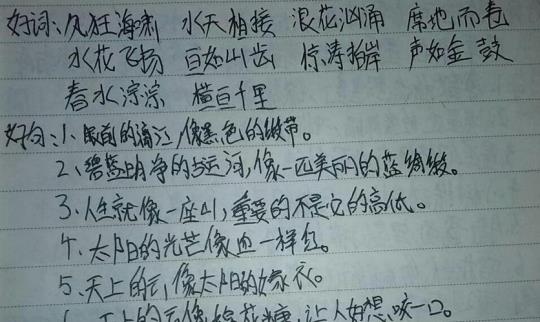 好词:风狂海啸 水天相接 浪花汹涌 席地而卷
水花飞扬 白如山齿 惊涛拍岸 声如金鼓
春水淙淙 横亘千里
好句:1、眼前的漓江,像黑色的缎带。
2、碧蓝明净的大运河,像一匹美丽的蓝绸缎。
3、人生就像一座山,重要的不是它的高低。
4、太阳的光芒像血一样红。
5、天上的云,像太阳的嫁衣。
天上的云像棉花糖,让人好想咬一口。